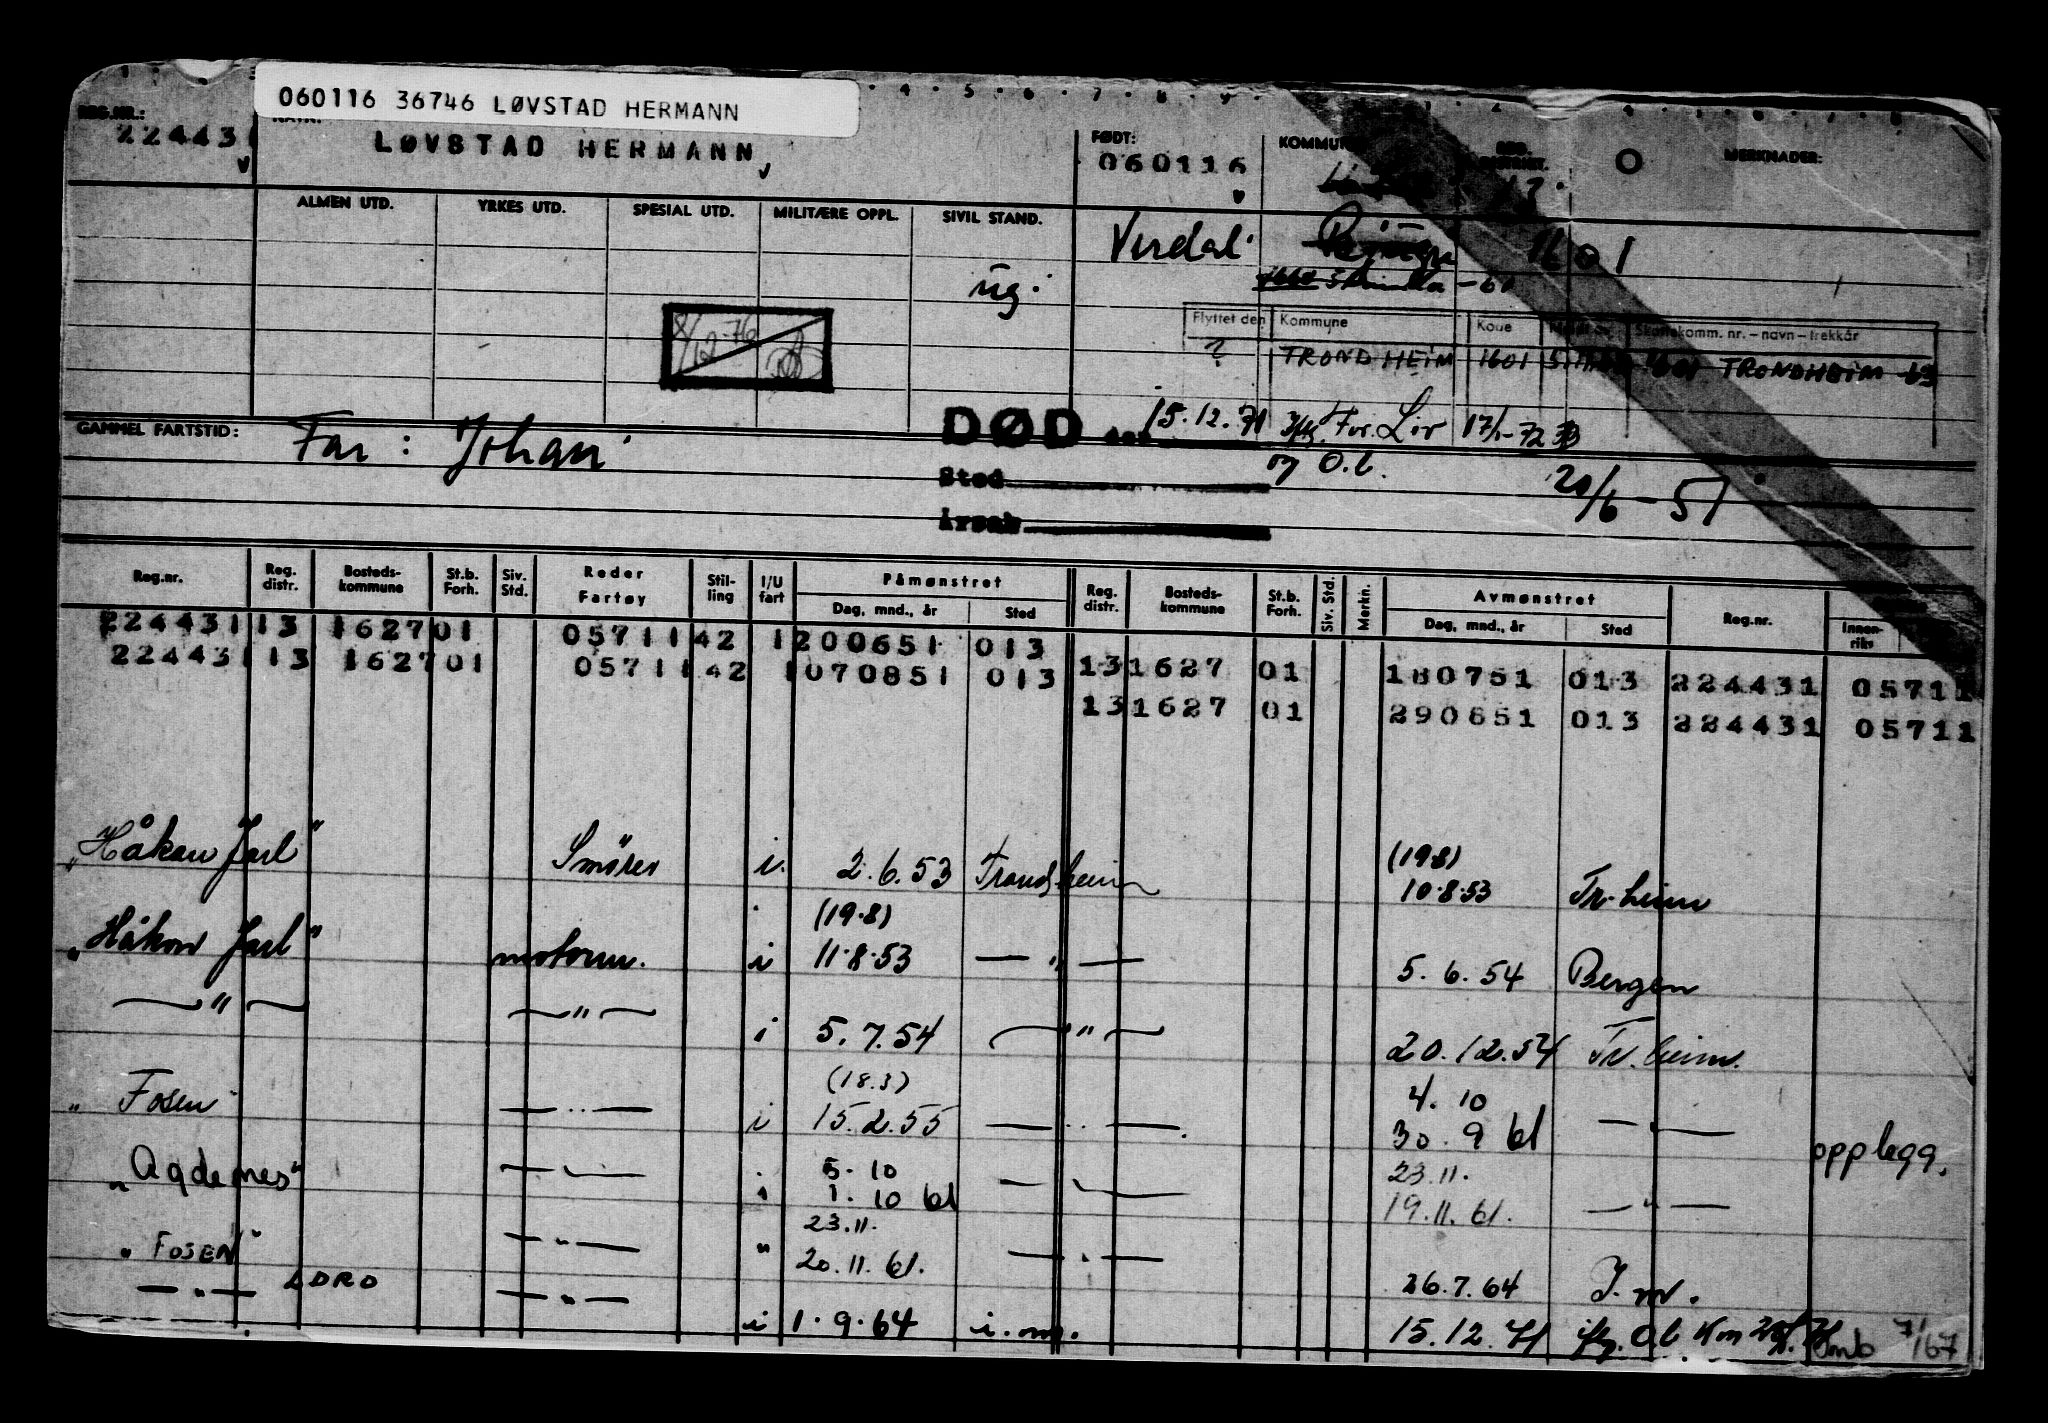 060116 36746 LØVSTAD HERMANN
REG.NR.: FØDT: KOMMUNE MERKNADER:
22443 LØVSTAD HERMANN 060116 13
ALMEN UTD. YRKES UTD. SPESIAL UTD. MILITÆRE OPPL. SIVIL STAND.
Verdal 1601
ug. -60
Flyttet den Kommune Kode Skattekomm. nr. – navn – trekkår
8/12-76
? TRONDHEIM 1601 1601 TRONDHEIM -63
GAMMEL FARTSTID: Far: Johan DØD den 15.12.71 Liv 17/1-72
Sted O.l. 20/6-51
Årsak
Reg.nr. Reg. distr. Bosteds-kommune St.b. Forh. Siv. Std. Reder Fartøy Stil-ling I/U fart Påmønstret Reg. distr. Bosteds-kommune St.b. Forh. Siv. Std. Merkn. Avmønstret Reg.nr.
Dag, mnd., år Sted Dag, mnd., år Sted Innen-riks
224431 13 1627 01 05711 42 1 200651 013
224431 13 1627 01 05711 42 1 070851 013 13 1627 01 180751 013 224431 05711
13 1627 01 290651 013 224431 05711
"Håkon Jarl" Smører i. 2.6.53 Trondheim (19.8) 10.8.53 Tr.heim
(19.8)
"Håkon Jarl" motorm. i 11.8.53 — " — 5.6.54 Bergen
— " — — " — i 5.7.54 — " — 20.12.54 Tr.heim.
(18.3) 4. 10
" Fosen — " — i 15.2.55 — " — 30. 9 61 — " — opplegg.
5. 10 23.11.
"Agdenes" — " — i 1. 10 61 — " — 19.11.61. — " —
23.11.
"FOSEN" — " — " 20.11.61. — " — 26.7.64 I.m.
— " — LDRO — " — i 1.9.64 i.m. 15.12.71 7/67